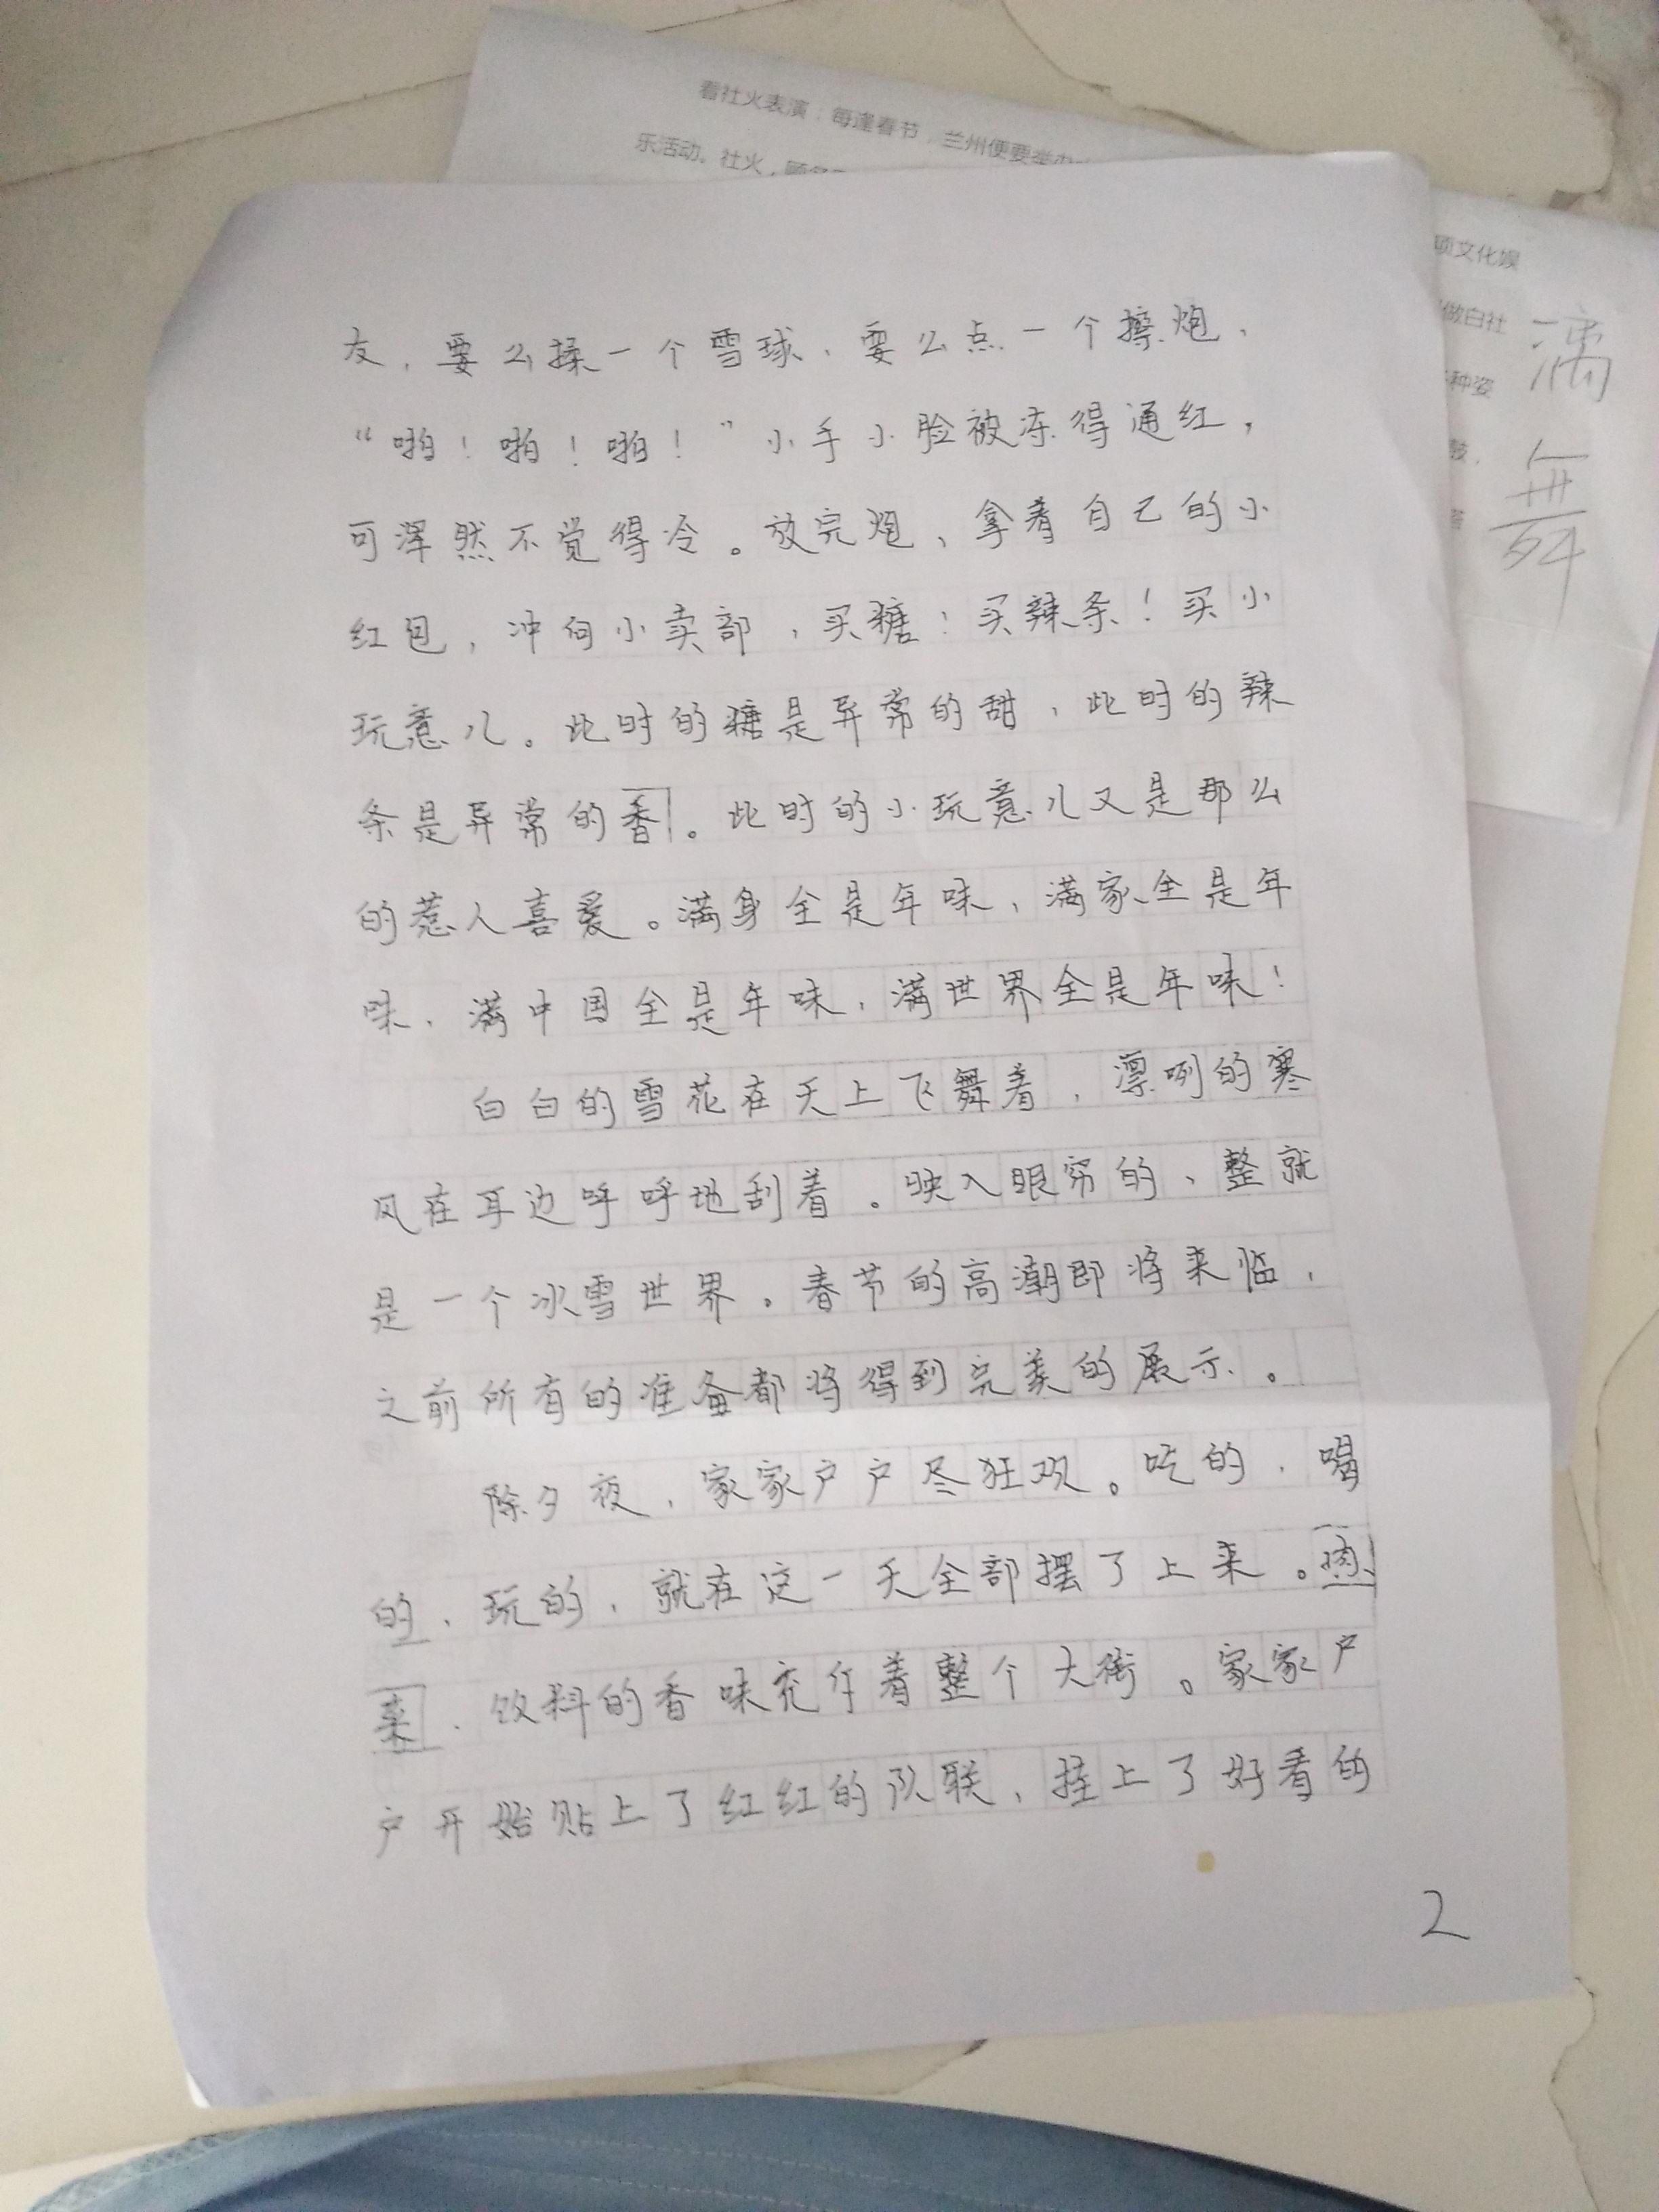 看社火表演：每逢春节，兰州便要举办
乐活动。社火，顾名
项文化娱
做白社
种姿
鼓，
满
舞
友，要么揉一个雪球，要么点一个擦炮，
“啪！啪！啪！”小手小脸被冻得通红，
可浑然不觉得冷。放完炮，拿着自己的小
红包，冲向小卖部，买糖！买辣条！买小
玩意儿。此时的糖是异常的甜，此时的辣
条是异常的香。此时的小玩意儿又是那么
的惹人喜爱。满身全是年味，满家全是年
味，满中国全是年味，满世界全是年味！
白白的雪花在天上飞舞着，凛咧的寒
风在耳边呼呼地刮着。映入眼帘的，整就
是一个冰雪世界。春节的高潮即将来临，
之前所有的准备都将得到完美的展示。
除夕夜，家家户户尽狂欢。吃的，喝
的，玩的，就在这一天全部摆了上来。肉
菜，饮料的香味充斥着整个大街。家家户
户开始贴上了红红的队联，挂上了好看的
2